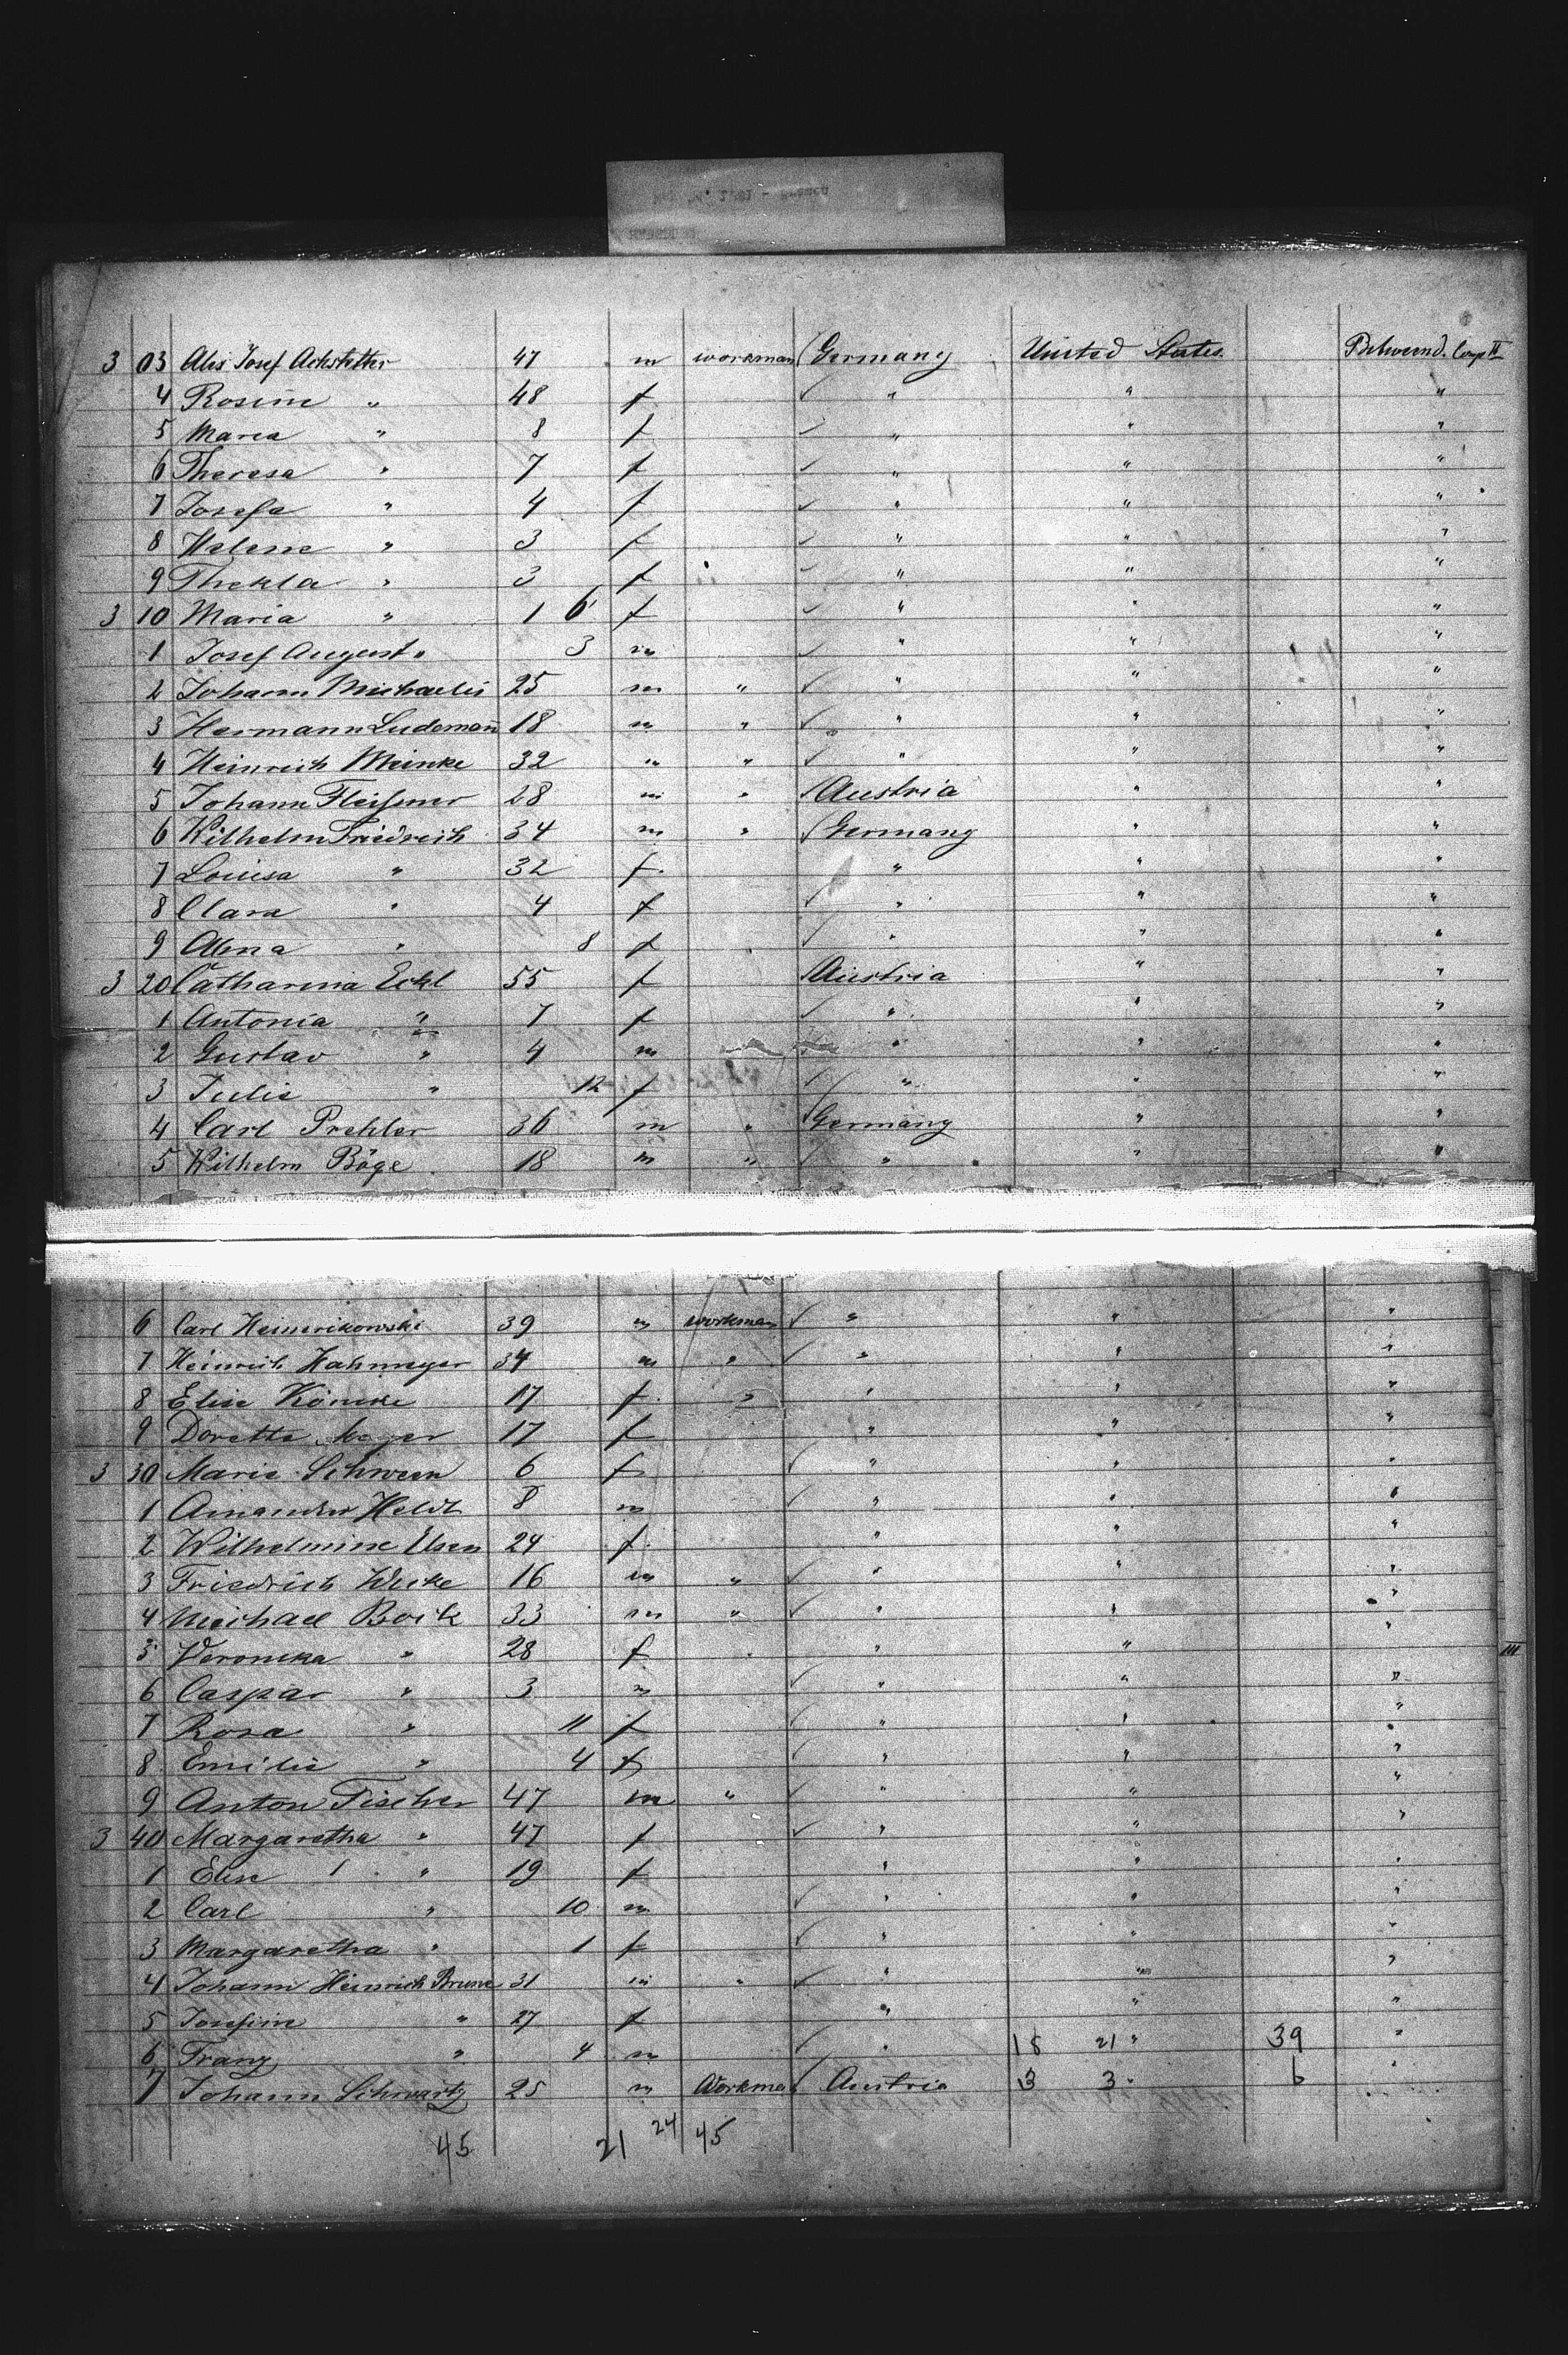 3 03 Alis Josef Achstetter 47 m workman Germany United States Betweend. Comp II
4 Rosine " 48 f " " "
5 Maria " 8 f " " "
6 Theresa " 7 f " " "
7 Josefa " 4 f " " "
8 Helene " 3 f " " "
9 Thekla " 3 f " " "
3 10 Maria " 1 6 f " " "
1 Josef August " 3 m " " "
2 Johann Michaelis 25 m " " " "
3 Hermann Ludemann 18 m " " " "
4 Heinrich Meinke 32 m " " " "
5 Johann Fleißner 28 m " Austria " "
6 Wilhelm Friedrich 34 m " Germany " "
7 Louisa " 32 f " " "
8 Clara " 4 f " " "
9 " 8 f " " "
3 20 Catharina Eckl 55 f Austria " "
1 Antonia " 7 f " " "
2 Gustav " 4 m " " "
3 Julie " 12 f " " "
4 Carl Prehler 36 m " Germany " "
5 Wilhelm Böge 18 m " " " "
6 Carl Heinrikowski 39 m workman " " "
7 Heinrich Hahmeyer 34 m " " " "
8 Elise Köncke 17 f " " " "
9 Dorette Meyer 17 f " " "
3 30 Marie Schween 6 f " " "
1 Amandus Heldt 8 m " " "
2 Wilhelmine Elsen 24 f " " "
3 Friedrich Wicke 16 m " " " "
4 Michael Bock 33 m " " " "
5 Veronika " 28 f " " " III
6 Caspar " 3 m " " "
7 Rosa " 11 f " " "
8 Emilie " 4 f " " "
9 Anton Fischer 47 m " " " "
3 40 Margaretha " 47 f " " "
1 Elise " 19 f " " "
2 Carl " 10 m " " "
3 Margaretha " 1 f " " "
4 Johann Heinrich Brune 31 m " " " "
5 Josefine " 27 f " " "
6 Franz " 4 m " 18 21 " 39 "
7 Johann Schwartz 25 m Workman Austria 3 3 " 6 "
45 21 24 45